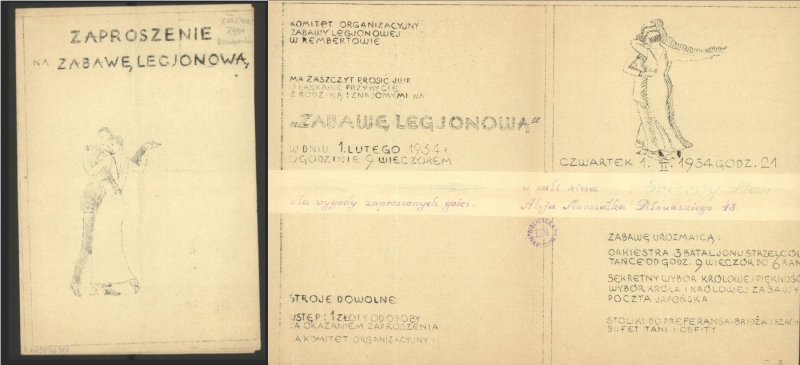 ZAPROSZENIE
NA ZABAWĘ LEGJONOWĄ
KOMITET ORGANIZACYJNY
ZABAWY LEGJONOWEJ
W REMBERTOWIE
MA ZASZCZYT PROSIĆ
O ŁASKAWE PRZYBYCIE
Z RODZINĄ I ZNAJOMYMI NA
„ZABAWĘ LEGJONOWĄ"
W DNIU 1. LUTEGO 1934 R
O GODZINIE 9 WIECZOREM
dla wygody zaproszonych gości.
STROJE DOWOLNE
WSTĘP: 1 ZŁOTY OD OSOBY
ZA OKAZANIEM ZAPROSZENIA
ZA KOMITET ORGANIZACYJNY:
CZWARTEK 1. II. 1934. GODZ. 21
w sali kina
Aleja Marszałka Piłsudskiego 48.
ZABAWĘ UROZMAICĄ:
ORKIESTRA 3 BATALJONU STRZELCÓ
TAŃCE OD GODZ. 9 WIECZÓR DO 6 RAN
SEKRETNY WYBÓR KRÓLOWEJ PIĘKNOŚ
WYBÓR KRÓLA I KRÓLOWEJ ZABAWY
POCZTA JAPOŃSKA
STOLIKI DO PREFERANSA-BRIDŻA I SZAC
BUFET TANI I OBFITY